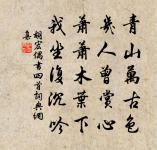 青山萬古色
幾人曾賞心
蕭蕭木葉下
我坐復沉吟
胡宏偶書四首詞典網
集